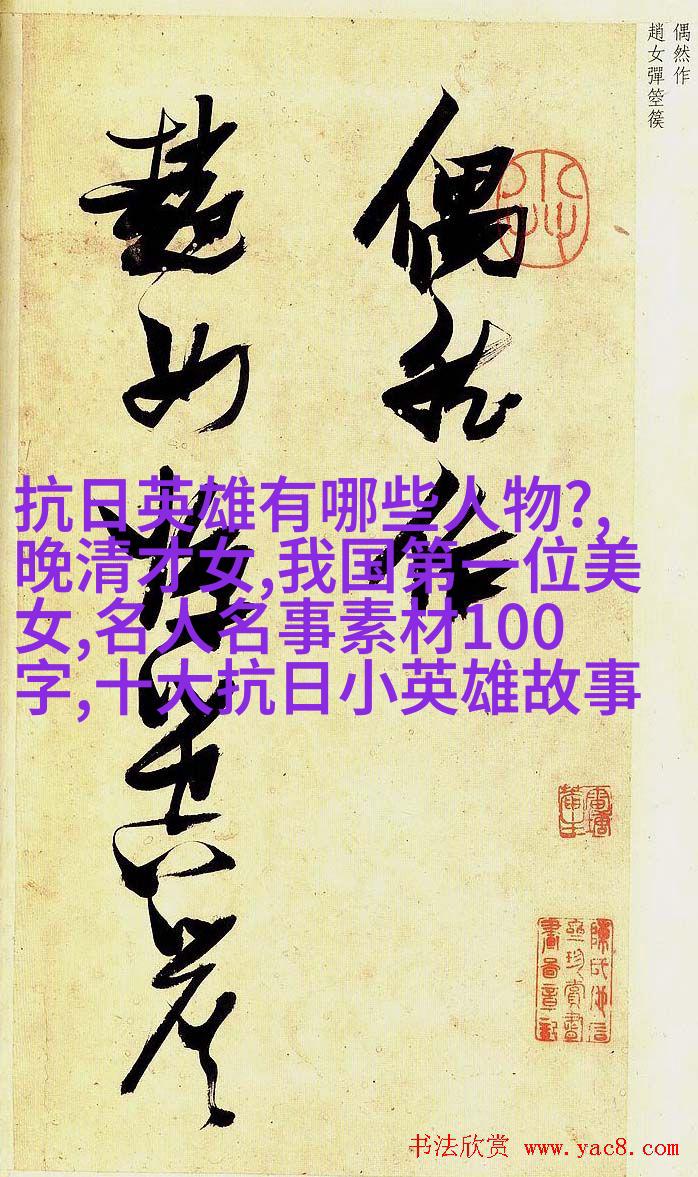 偶然作
趙女彈箜篌
偶然作
趙女彈箜篌
抗日英雄有哪些人物?,
晚清才女,我国第一位美
女,名人名事素材100
字,十大抗日小英雄故事
书法欣赏 www.yac8.com